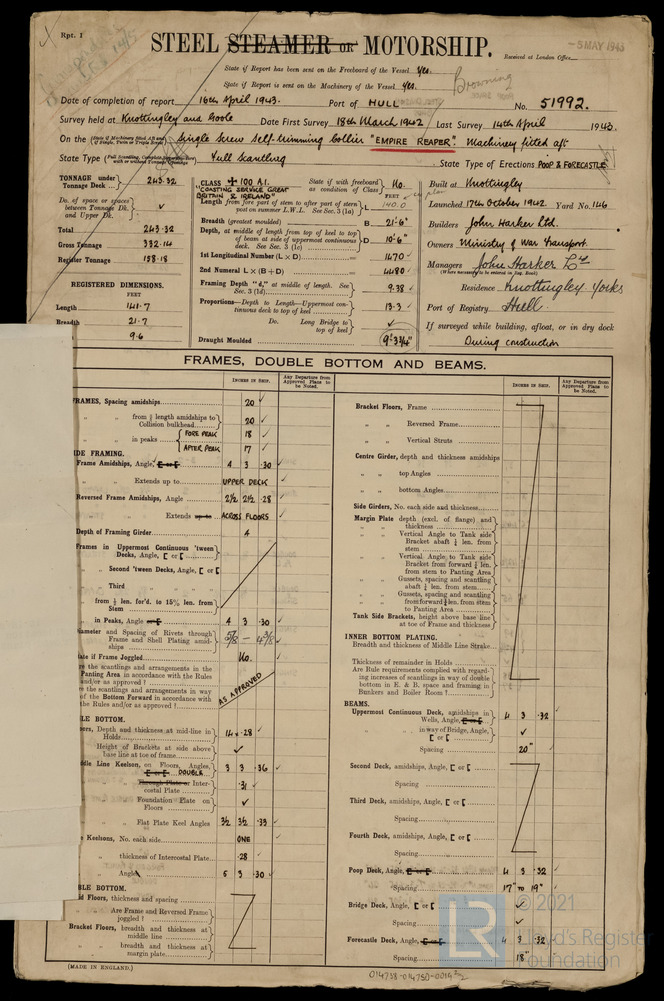 Rpt. 1
STEEL STEAMER OR MOTORSHIP.
-5 MAY 1943
Received at London Office
State if Report has been sent on the Freeboard of the Vessel Yes.
State if Report is sent on the Machinery of the Vessel Yes.
Browning
Date of completion of report 16th April 1943. Port of HULL No. 51992.
Survey held at Knottingley and Goole Date First Survey 18th March 1942 Last Survey 14th April 1943.
On the Single Screw Self-trimming Collier "EMPIRE REAPER". Machinery fitted aft
State Type Full Scantling State Type of Erections POOP & FORECASTLE
TONNAGE under Tonnage Deck 243.32
Do. of space or spaces between Tonnage Dk. and Upper Dk. ✓
Total 243.32
Gross Tonnage 332.14
Register Tonnage 158.18
REGISTERED DIMENSIONS.
FEET
Length 141.7
Breadth 21.7
9.6
CLASS + 100 A.1. State if with freeboard as condition of Class No.
"COASTING SERVICE GREAT BRITAIN & IRELAND"
Length from fore part of stem to after part of stern post on summer L.W.L. See Sec. 3 (1a) L 140.0
Breadth (greatest moulded) B 21'-6"
Depth, at middle of length from top of keel to top of beam at side of uppermost continuous deck. See Sec. 3 (1c) D 10'-6"
1st Longitudinal Number (L × D) 1470
2nd Numeral L × (B + D) 4480
Framing Depth "d," at middle of length. See Sec. 3 (1d) 9.38
Proportions—Depth to Length—Uppermost continuous deck to top of keel 13.3
Do. Long Bridge to top of keel ✓
Draught Moulded 9'-3¾"
Built at Knottingley
Launched 17th October 1942 Yard No. 146
Builders John Harker Ltd.
Owners Ministry of War Transport.
Managers John Harker Ld
(Where necessary to be entered in Reg. Book)
Residence Knottingley Yorks
Port of Registry Hull
If surveyed while building, afloat, or in dry dock
During construction
FRAMES, DOUBLE BOTTOM AND BEAMS.
INCHES IN SHIP. Any Departure from Approved Plans to be Noted.
INCHES IN SHIP. Any Departure from Approved Plans to be Noted.
FRAMES, Spacing amidships 20
from ⅕ length amidships to Collision bulkhead 20
in peaks FORE PEAK 18
AFTER PEAK 17
SIDE FRAMING.
Frame Amidships, Angle, [ or [ 4 3 .30
Extends up to UPPER DECK
Reversed Frame Amidships, Angle 2½ 2½ .28
Extends up to ACROSS FLOORS
Depth of Framing Girder 4
Frames in Uppermost Continuous 'tween Decks, Angle, [ or [
Second 'tween Decks, Angle, [ or [
Third
from ⅕ len. for'd. to 15% len. from Stem
in Peaks, Angle or [ 4 3 .30
Diameter and Spacing of Rivets through Frame and Shell Plating amidships 5/8 — 4 3/8
State if Frame Joggled No.
Are the scantlings and arrangements in the Panting Area in accordance with the Rules and/or as approved? AS APPROVED
Are the scantlings and arrangements in way of the Bottom Forward in accordance with the Rules and/or as approved?
SINGLE BOTTOM.
Floors, Depth and thickness at mid-line in Holds 14 .28
Height of Brackets at side above base line at toe of frame ✓
Middle Line Keelson, on Floors, Angles, [ or [ DOUBLE 3 3 .36
Through Plate or Intercostal Plate .31
Foundation Plate on Floors ✓
Flat Plate Keel Angles 3½ 3½ .33
Side Keelsons, No. each side ONE
thickness of Intercostal Plate .28
Angles 5 3 .30
DOUBLE BOTTOM.
Solid Floors, thickness and spacing
Are Frame and Reversed Frame joggled?
Bracket Floors, breadth and thickness at middle line
breadth and thickness at margin plate
Bracket Floors, Frame
Reversed Frame
Vertical Struts
Centre Girder, depth and thickness amidships
top Angles
bottom Angles
Side Girders, No. each side and thickness
Margin Plate depth (excl. of flange) and thickness
Vertical Angle to Tank side Bracket abaft ¼ len. from stem
Vertical Angle to Tank side Bracket from forward ¼ len. from stem to Panting Area
Gussets, spacing and scantling abaft ¼ len. from stem
Gussets, spacing and scantling from forward ¼ len. from stem to Panting Area
Tank Side Brackets, height above base line at toe of Frame and thickness
INNER BOTTOM PLATING.
Breadth and thickness of Middle Line Strake
Thickness of remainder in Holds
Are Rule requirements complied with regarding increases of scantlings in way of double bottom in E. & B. space and framing in Bunkers and Boiler Room?
BEAMS.
Uppermost Continuous Deck, amidships in Wells, Angle, [ or [ 4 3 .32
in way of Bridge, Angle, [ or [ ✓
Spacing 20"
Second Deck, amidships, Angle, [ or [
Spacing
Third Deck, amidships, Angle, [ or [
Spacing
Fourth Deck, amidships, Angle, [ or [
Spacing
Poop Deck, Angle, [ or [ 4 3 .32
Spacing 17" to 19"
Bridge Deck, Angle, [ or [ ✓
Spacing ✓
Forecastle Deck, Angle, [ or [ 4 3 .32
Spacing 18"
(MADE IN ENGLAND.)
014738-014750-0014
LR
© 2021
Lloyd's Register
Foundation